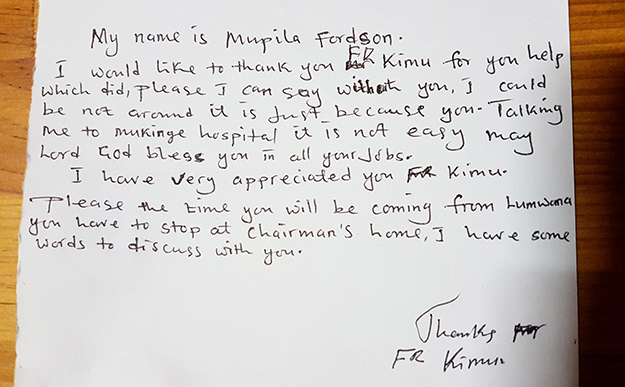 My name is Mupila Fordson.
I would like to thank you FR Kimu for you help
which did, please I can say without you, I could
be not around it is Just because you. Talking
me to mukinge hospital it is not easy may
Lord God bless you in all your Jobs.
I have very appreciated you FR Kimu.
Please the time you will be coming from Lumwana
you have to stop at Chairman's home, I have some
words to discuss with you.
Thanks
FR Kimu